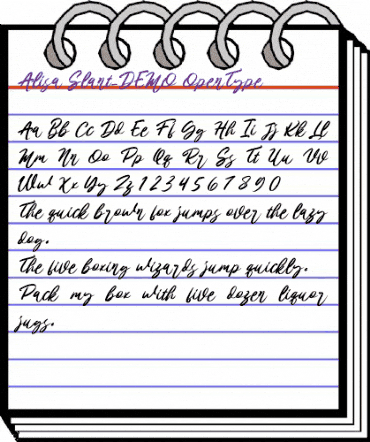 Alisa Slant-DEMO OpenType
Aa Bb Cc Dd Ee Ff Gg Hh Ii Jj Kk Ll
Mm Nn Oo Pp Qq Rr Ss Tt Uu Vv
Ww Xx Yy Zz 1 2 3 4 5 6 7 8 9 0
The quick brown fox jumps over the lazy
dog.
The five boxing wizards jump quickly.
Pack my box with five dozen liquor
jugs.